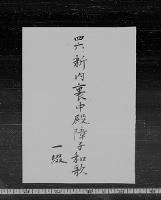 四六 新内裏中殿障子和歌
一綴